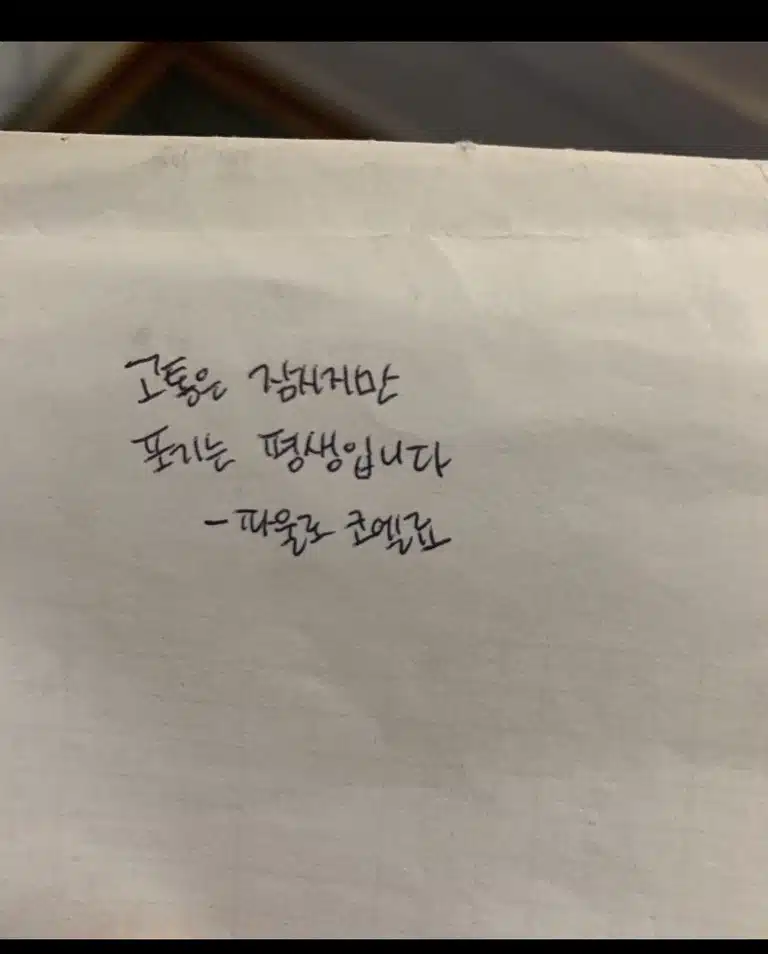 고통은 잠시지만
포기는 평생입니다
- 파울로 코엘료